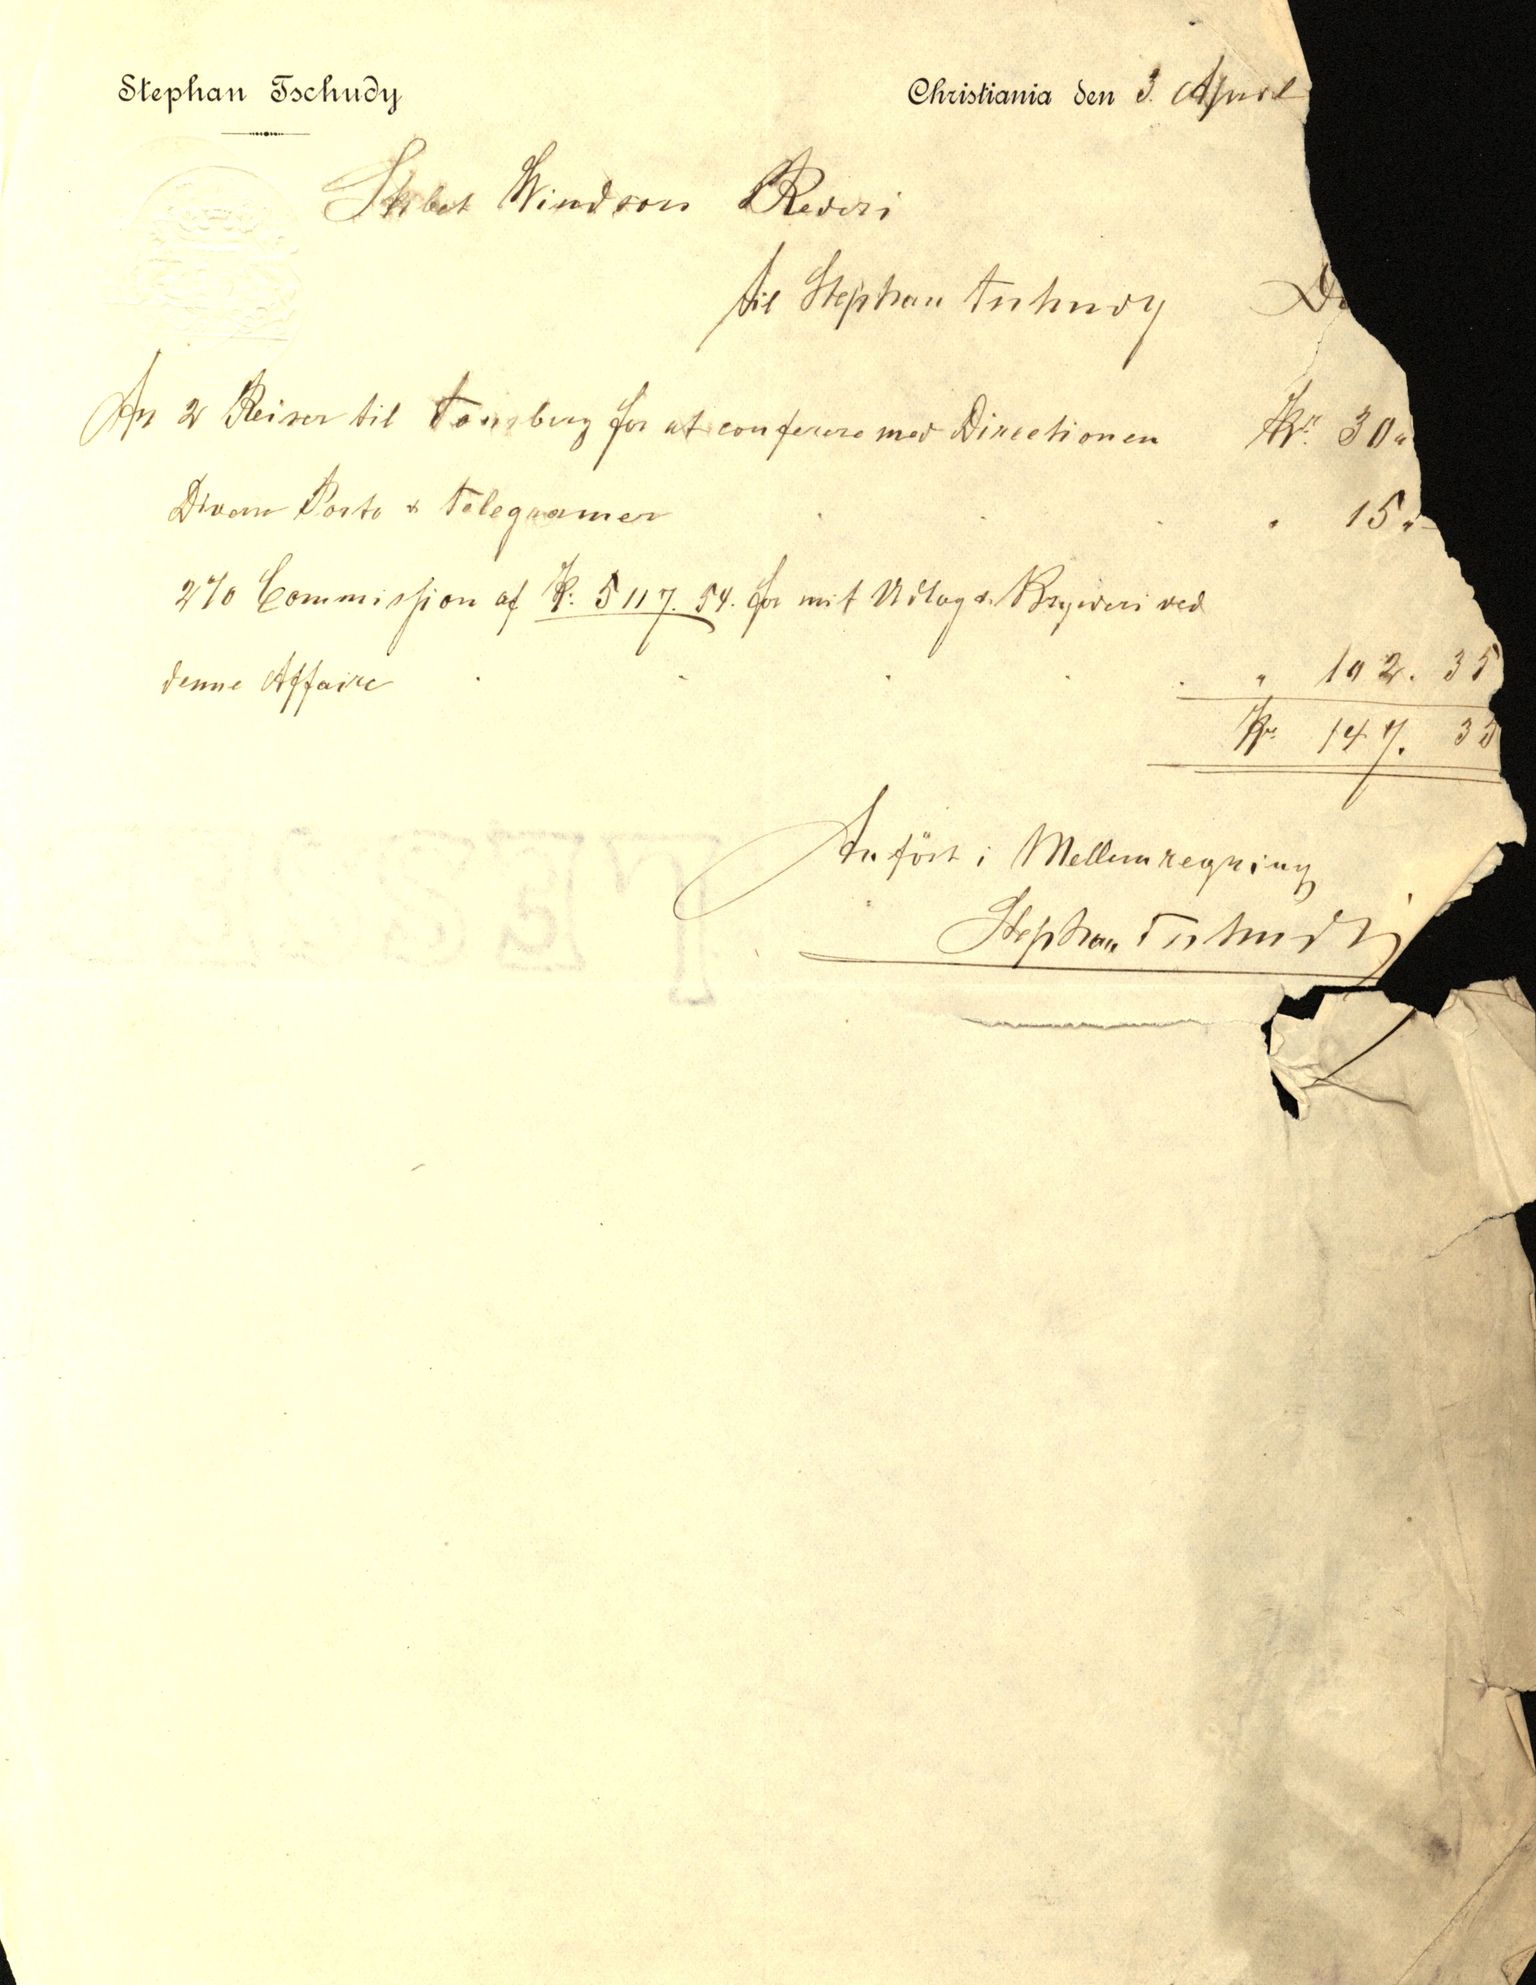 Stephan Tschudy
Christiania den 3. April
Skibet Windsors Rederi
til Stephan Tschudy
An 2 Reiser til Tønsberg for at conferere med Directionen Kr. 30 "
Divers Porto & Telegramer " 15 "
2% Commission af Kr: 5117. 54. for mit Udlæg & Bryderi ved
denne Affaire " 102. 35
Kr. 147. 35
Anført i Mellemregning
Stephan Tschudy